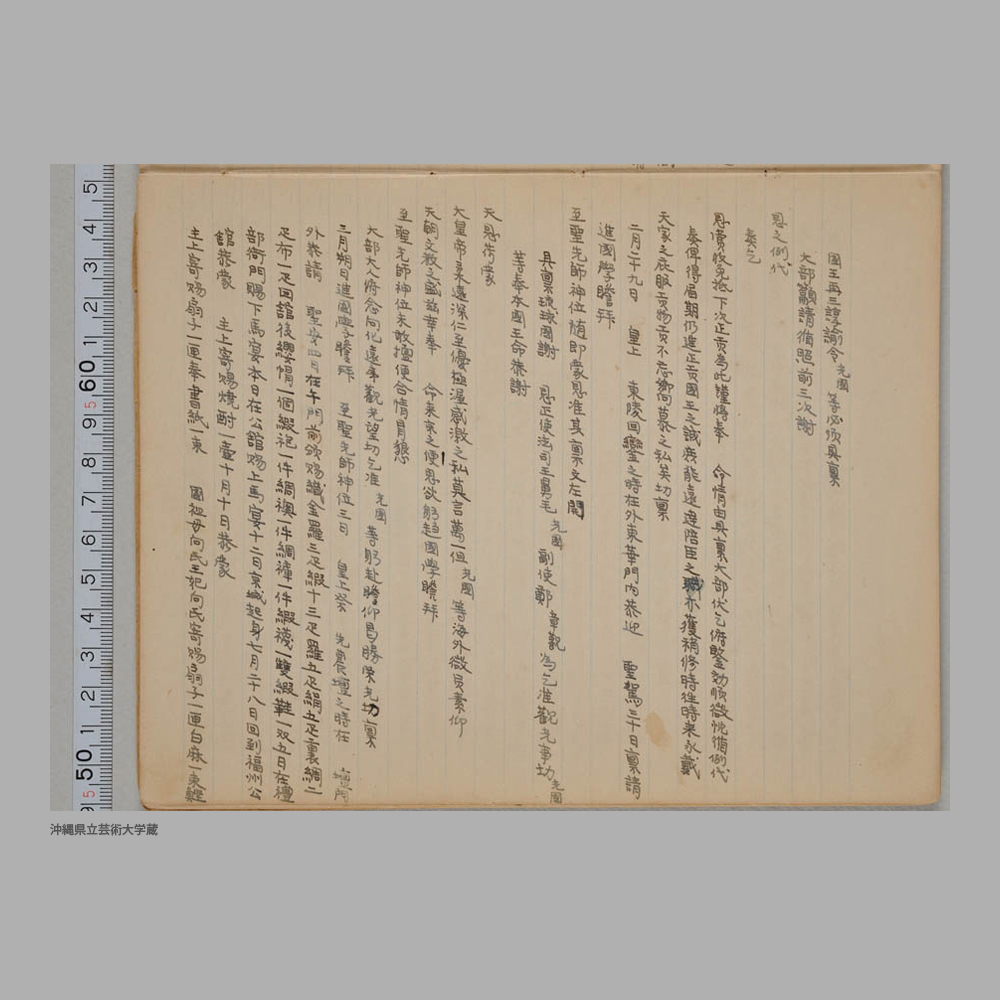 國王再三諄諭令 光國 等必須具稟
大部籲請循照前三次謝
恩之例代
奏乞
恩賞收免抵下次正貢為此謹將奉 命情由具稟大部伏乞俯鑒効順微忱循例代
奏俾得屆期仍進正貢國主之誠庶能遠達陪臣之職亦獲稍修時往時来永戴
天家之庇賑貢物貢不忘鄉向慕之私矣切稟
二月二十九日 皇上 東陵回鑾之時在外東華門内恭迎 聖駕三十日稟請
進國學瞻拜
至聖先師神位随即蒙恩准其稟文左開
具稟琉球國謝 恩正使法司王舅毛 光國 副使鄭 章觀 為乞准觀光事切 光國
等奉本國王命恭謝
天恩荷蒙
大皇帝柔遠深仁至優極渥感激之私莫言萬一但 光國 等海外微員素仰
天朝文教之盛茲幸奉 命来京之便思欲躬趋國學瞻拜
至聖先師神位未敢擅便合情冐懇
大部大人府念向化遠来觀光望切乞准 光國 等躬赴瞻仰昌勝榮光切稟
三月朔日進國學瞻拜 至聖先師神位三日 皇上祭 先農壇之時在 壇門
外恭請 聖安四日在午門前頒賜織金羅三疋緞十三疋羅五疋絹五疋裏綢二
疋布一疋回舘後纓帽一個緞袍一件綢襖一件綢褲一件緞襪一雙緞鞋一双五日在禮
部衙門賜下馬宴本日在公舘賜上馬宴十二日京城起身七月二十八日回到福州公
舘恭蒙 主上寄賜燒酎一壷十月十日恭蒙
主上寄賜扇子一匣奉書紙一束 國祖母向氏王妃向氏寄賜扇子一匣白麻一束經
沖縄県立芸術大学蔵